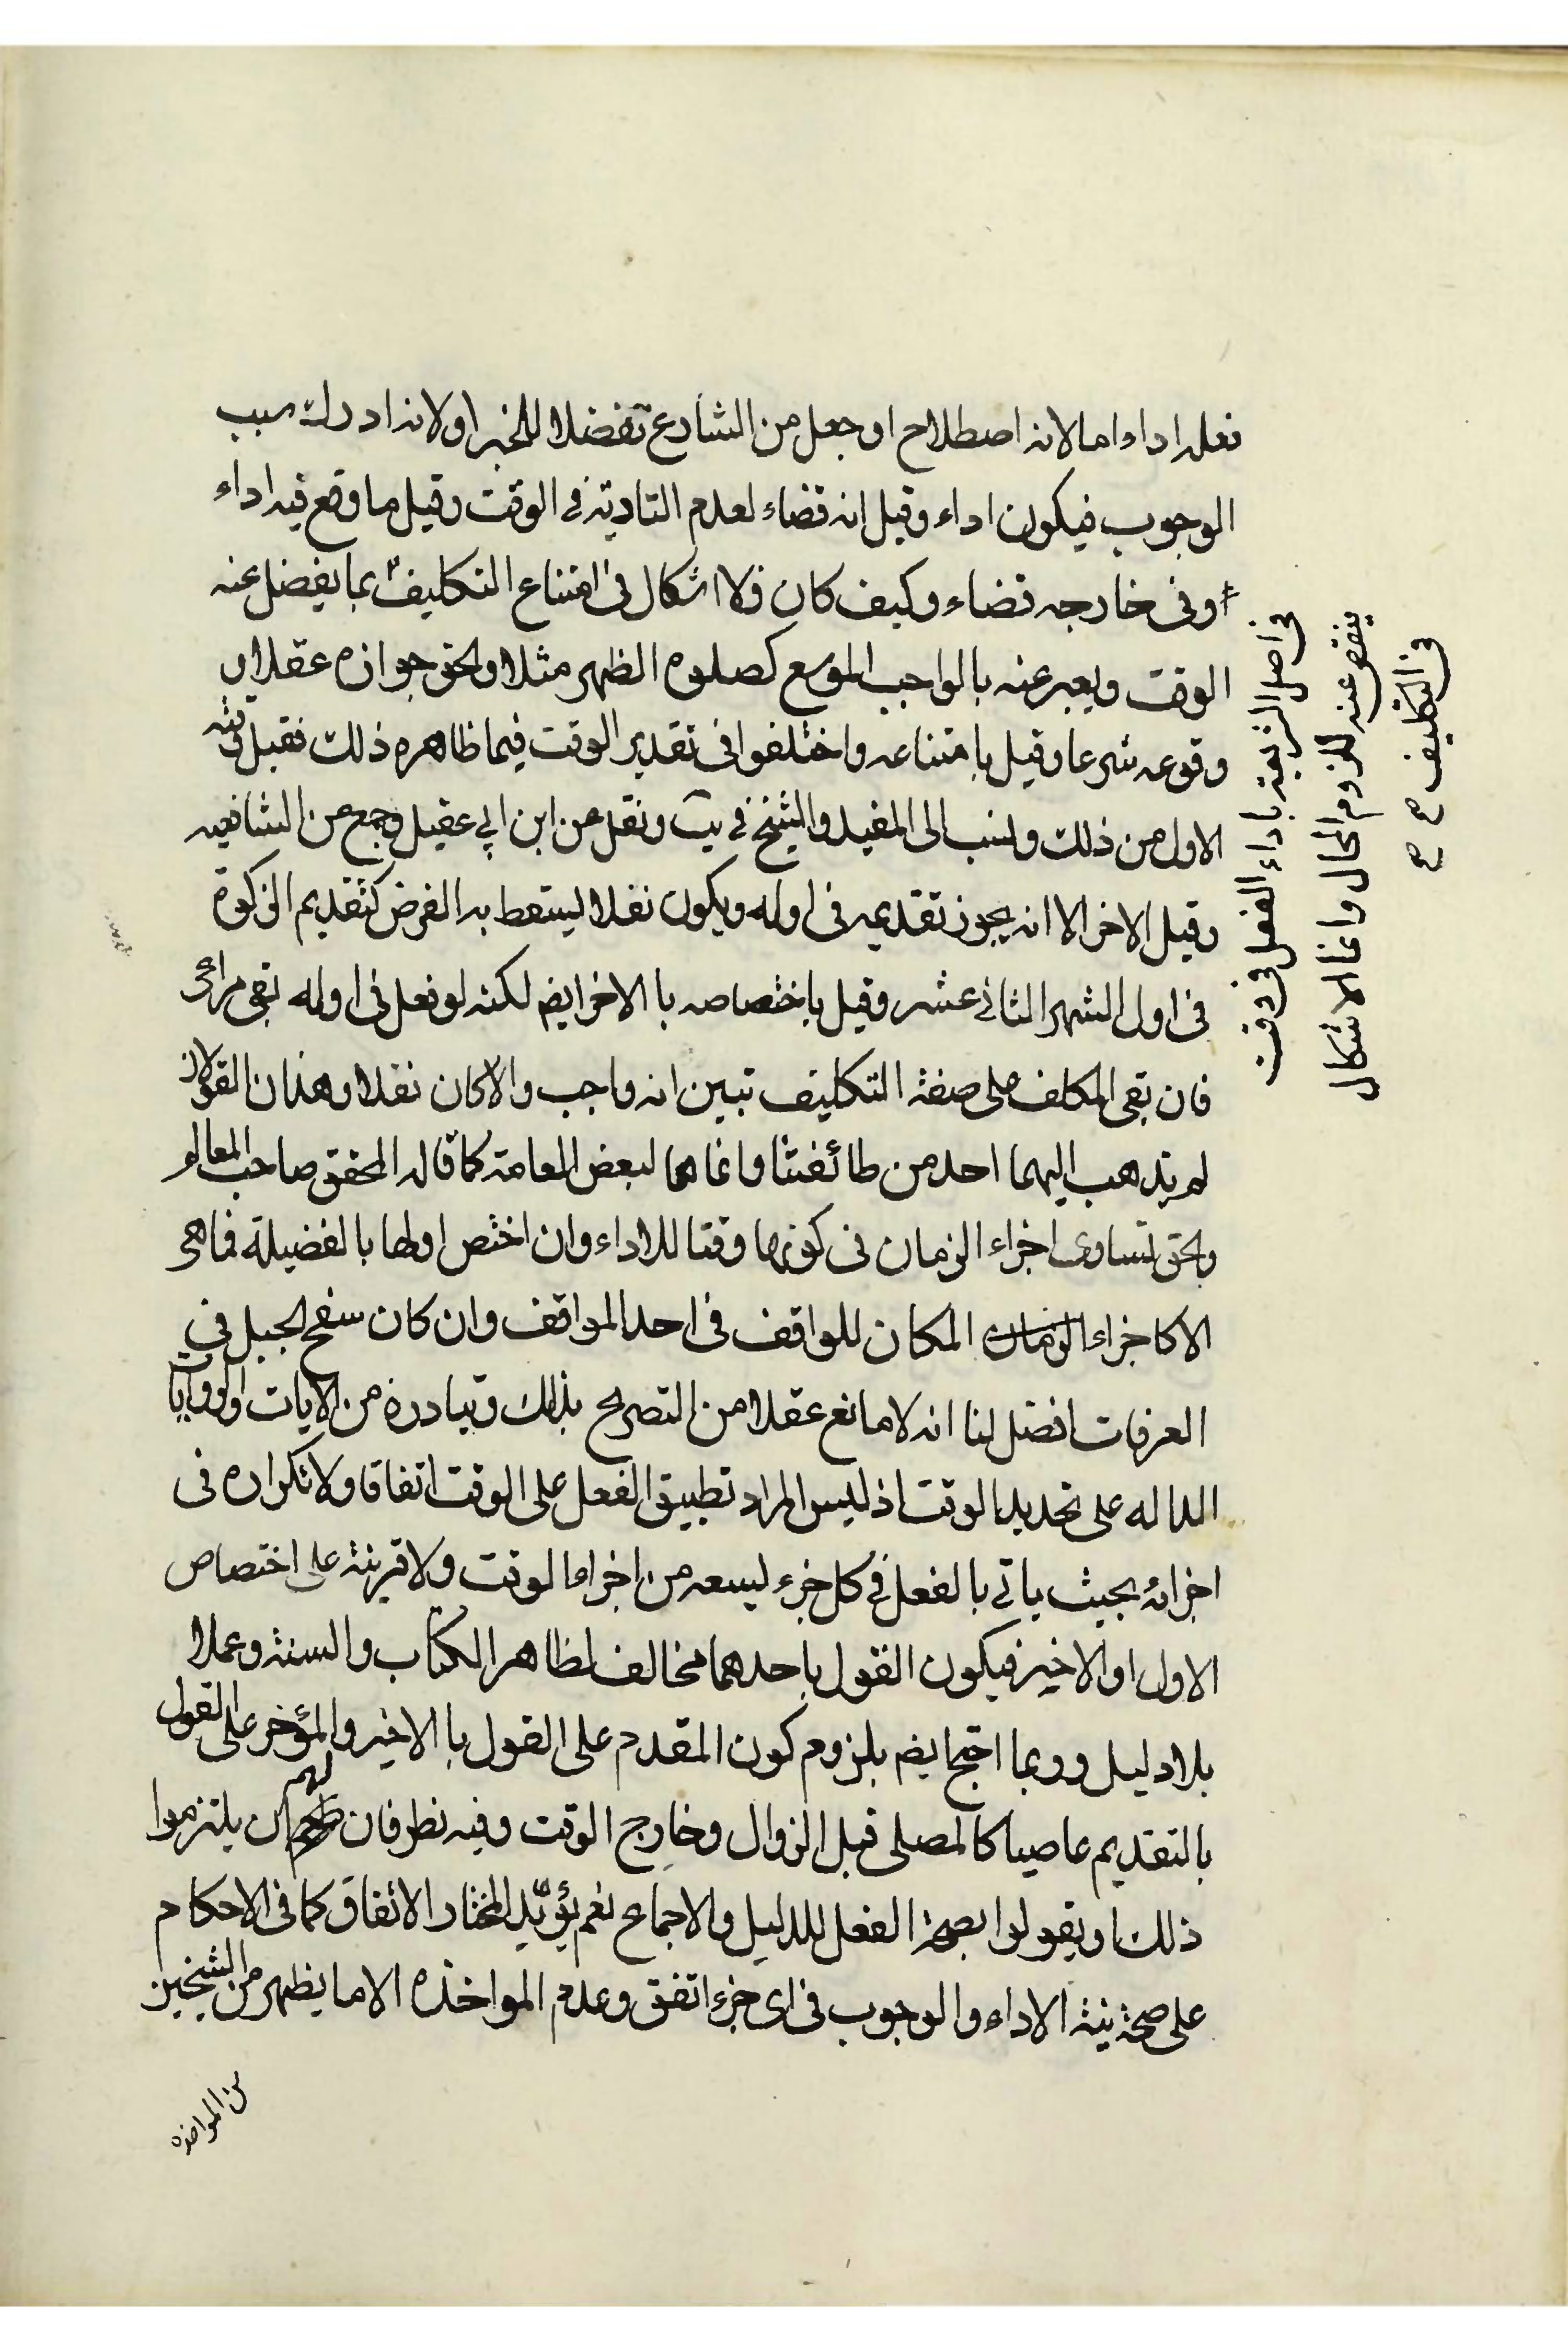 فعله اداء اما لانه اصطلاح او جعل من الشارع تفضلا للخبر او لانه ادرك سبب
الوجوب فيكون اداء وقيل انه قضاء لعدم التادية في الوقت وقيل ما وقع فيه اداء
وفي خارجه قضاء وكيف كان فلا اشكال في امتناع التكليف بما يفضل عنه
الوقت ويعبر عنه بالواجب الموسع كصلوة الظهر مثلا والحق جوازه عقلا
وقوعه شرعا وقيل بامتناعه واختلفوا في تقدير الوقت فيما ظاهره ذلك فقيل
الاول من ذلك ونسب الى المفيد والشيخ في يب ونقل عن ابن ابي عقيل وجمع من الشافعيه
وقيل الاخر الا انه يجوز تقديمه في اوله ويكون نفلا ليسقط به الفرض كتقديم الزكوة
في اول الشهر الثاني عشر وقيل باختصاصه با الاخر ايضم لكنه لو فعل في اوله بقي مراعى
فان بقي المكلف على صفة التكليف تبين انه واجب والا كان نفلا وهذان القولان
لم يذهب اليهما احد من طائفتنا وانما هما لبعض العامة كما قاله المحقق صاحب المعالم
والحق تساوى اجزاء الزمان في كونها وقتا للاداء وان اختص اولها بالفضيلة فما هي
الا كاجزاء الزمان المكان للواقف في احد المواقف وان كان سفح الجبل في
العرفات افضل لنا انه لا مانع عقلا من التصريح بذلك وتبادره من الايات والروايات
الداله على تحديد الوقت اذ ليس المراد تطبيق الفعل على الوقت اتفاقا ولا تكراره في
اجزائه بحيث ياتي بالفعل في كل جزء ليسعه من اجزاء الوقت ولا قرينة على اختصاص
الاول او الاخير فيكون القول باحدهما مخالف لظاهر الكتاب والسنة وعملا
بلا دليل وربما احتج ايضم بلزوم كون المقدم على القول با الاخير والمؤخر على القول
بالتقديم عاصيا كالمصلي قبل الزوال وخارج الوقت وفيه نظر فان لهم ان يلتزموا
ذلك ويقولوا بصحة الفعل للدليل والاجماع نعم يؤيد المختار الاتفاق كما في الاحكام
على صحة نية الاداء والوجوب في اى جزء اتفق وعدم المواخذه الا ما يظهر من الشيخين
من المواخذه
في اصل الشريعة باداء الفعل في وقت
ينقص عنه للزوم المحال وانما الاشكال
في التكليف صح صح